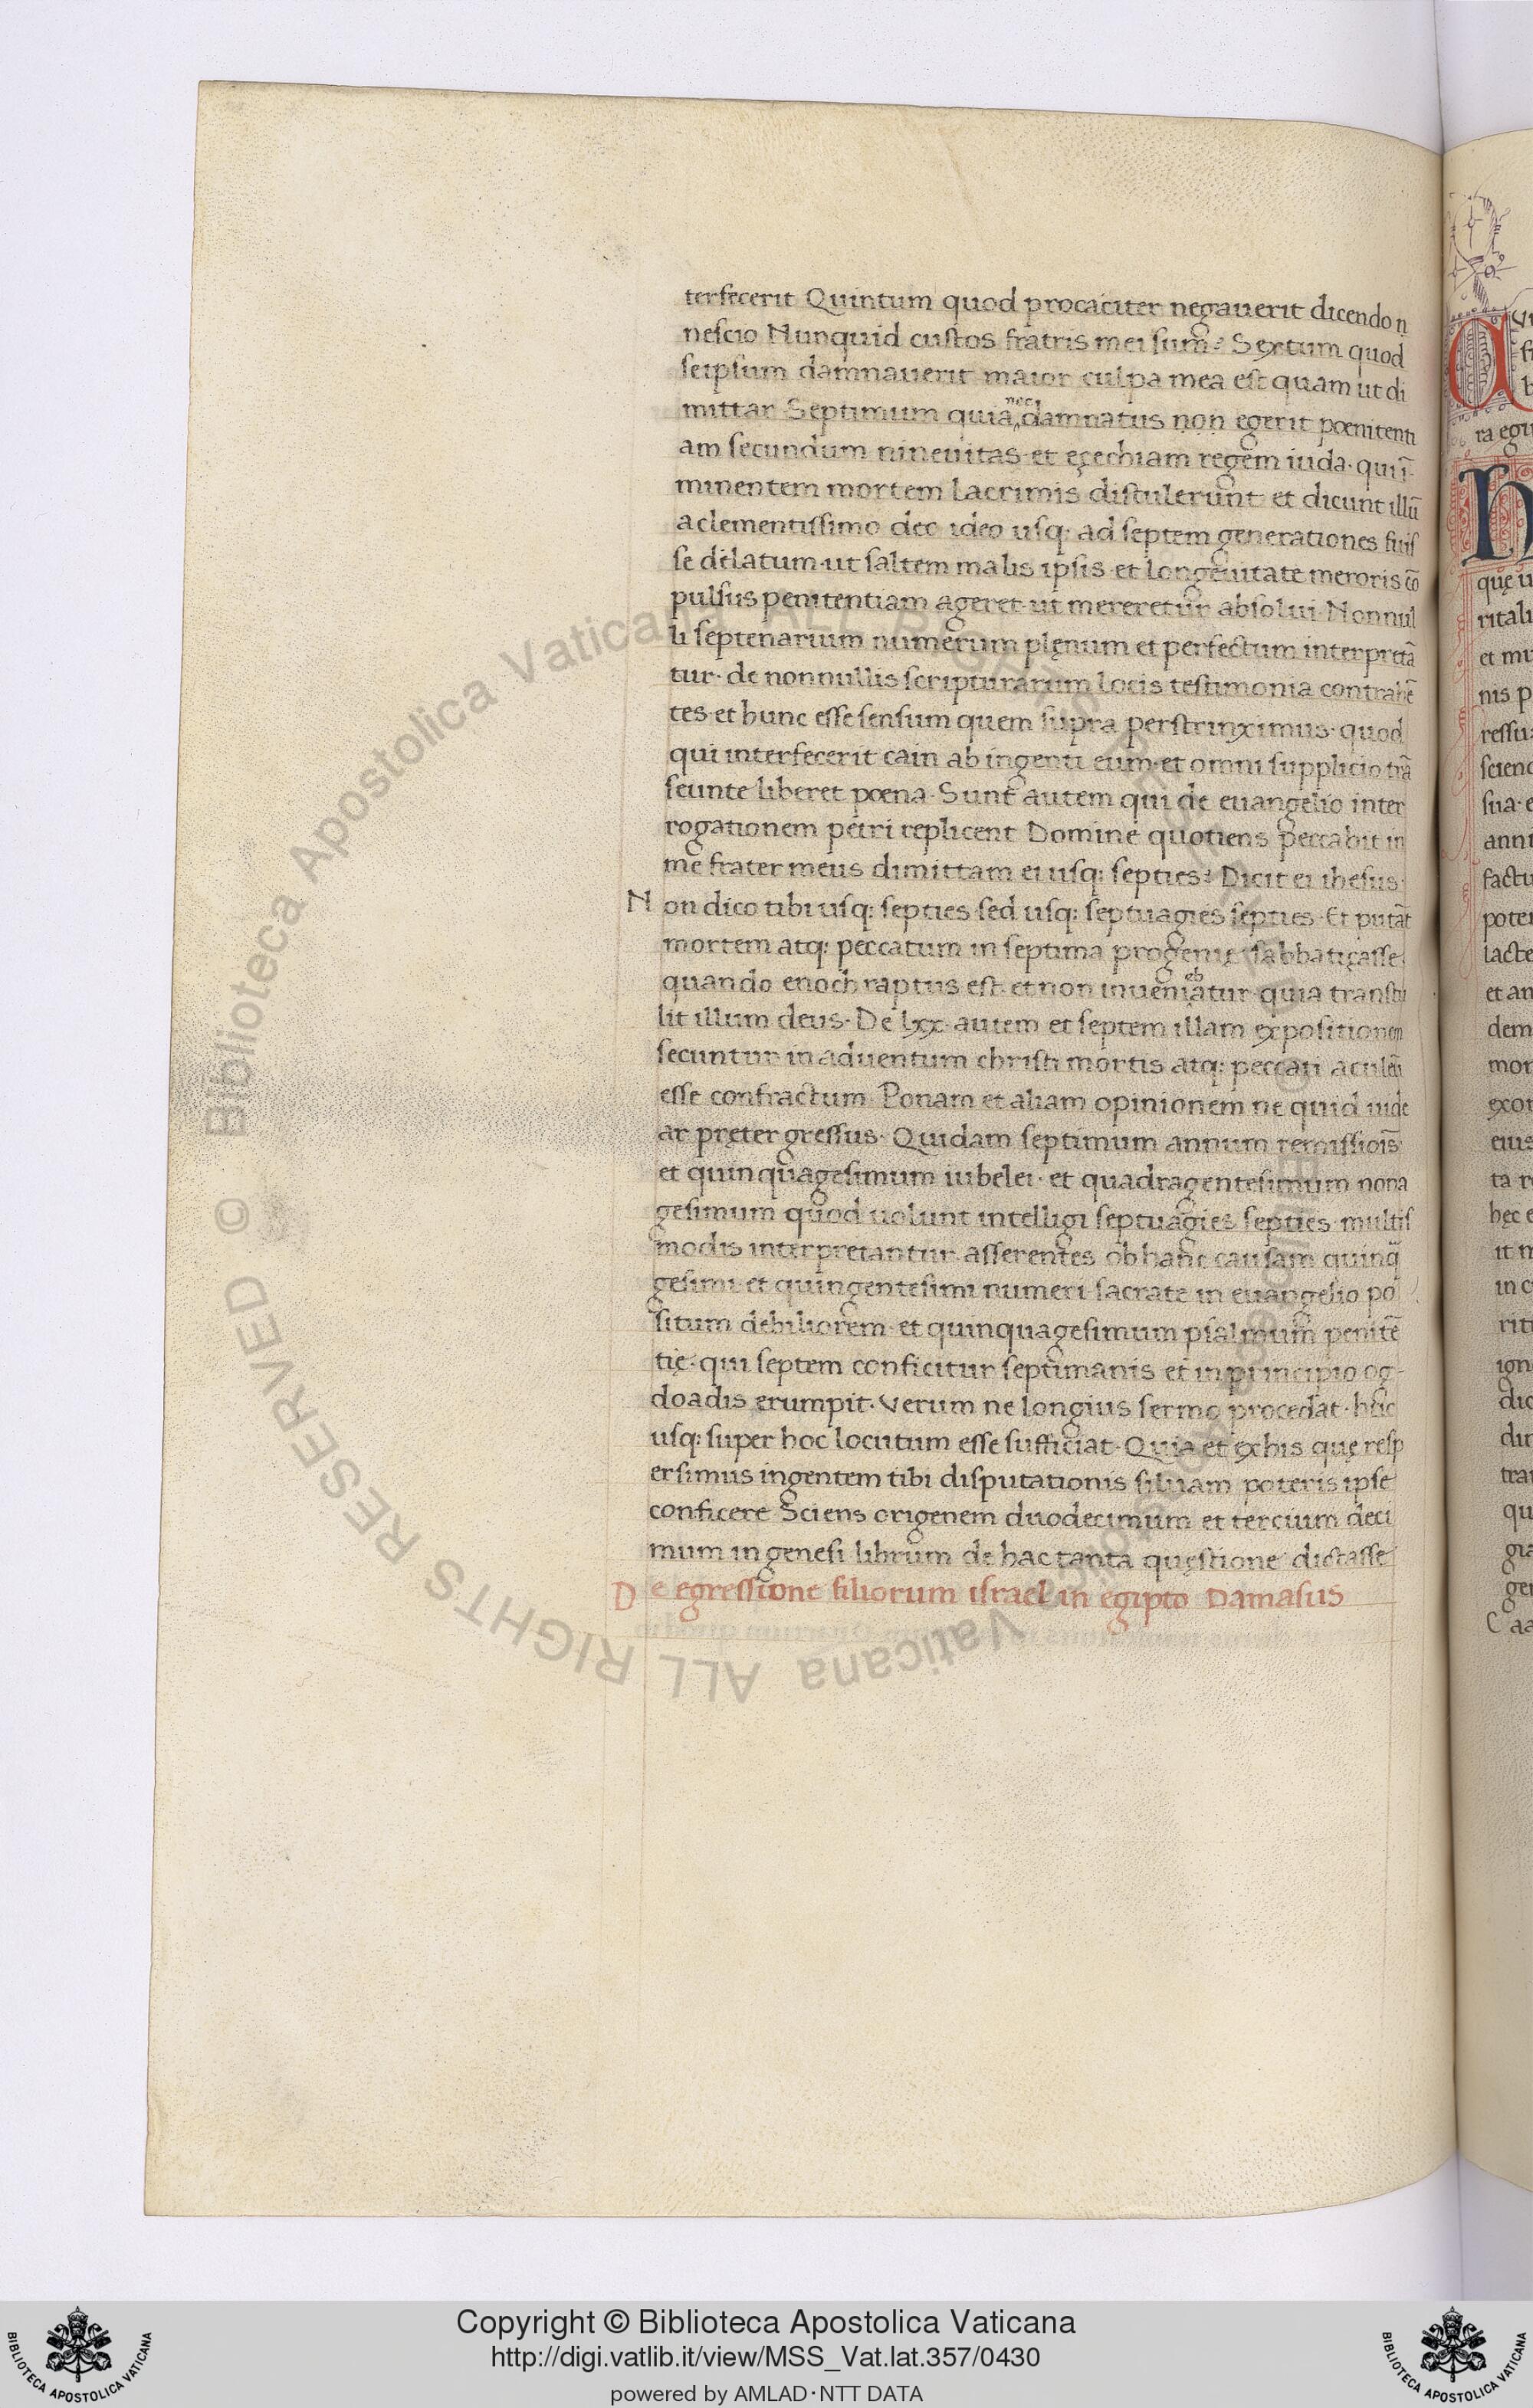 terfecerit Quintum quod procaciter negauerit dicendo n
nescio Nunquid custos fratris mei sum? Sextum quod
seipsum damnauerit maior culpa mea est quam ut di
mittar Septimum quia nec damnatus non egerit poenitenti
am secundum nineuitas et eçechiam regem iuda· qui ī
minentem mortem lacrimis distulerunt et dicunt illū
a clementissimo deo ideo usq; ad septem generationes fuis
se dilatum· ut saltem malis ipsis et longeuitate meroris cō
pulsus penitentiam ageret ut mereretur absolui· Nonnul
li septenarium numerum plęnum et perfectum interpretā
tur· de nonnullis scripturarum locis testimonia contrahē
tes· et hunc esse sensum quem supra perstrinximus· quod
qui interfecerit cain ab ingenti eum· et omni supplicio trā
seunte liberet poena· Sunt autem qui de euangelio inter
rogationem petri replicent Domine quotiens peccabit in
me frater meus dimittam ei usq; septies? Dicit ei ihesus·
Non dico tibi usq; septies sed usq; septuagies septies· Et putāt
mortem atq; peccatum in septima progenie sabbatiçasse
quando enoch raptus est· et non inueniebatur quia transtu
lit illum deus· De lxx· autem et septem illam expositionem
secuntur in aduentum christi mortis atq; peccati aculeū
esse confractum· Ponam et aliam opinionem ne quid uide
ar pręter gressus· Quidam septimum annum remissiōis
et quinquagesimum iubelei· et quadragentesimum nona
gesimum quod uolunt intelligi septuagies septies multis
modis interpretantur· asserentes ob hanc causam quinq̄
gesimi et quingentesimi numeri sacrate in euangelio po
situm debiliorem· et quinquagesimum psalmum penitē
tię· qui septem conficitur septimanis et in principio og-
doadis erumpit· Verum ne longius sermo procedat· huc
usq; super hoc locutum esse sufficiat· Quia et ex his quę resp
ersimus ingentem tibi disputationis siluam poteris ipse
conficere Sciens origenem duodecimum et tercium deci
mum in genesi librum de hac tanta quęstione dictasse
De egressione filiorum israel in egipto Damasus
Copyright © Biblioteca Apostolica Vaticana
http://digi.vatlib.it/view/MSS_Vat.lat.357/0430
powered by AMLAD·NTT DATA
BIBLIOTECA APOSTOLICA VATICANA
BIBLIOTECA APOSTOLICA VATICANA